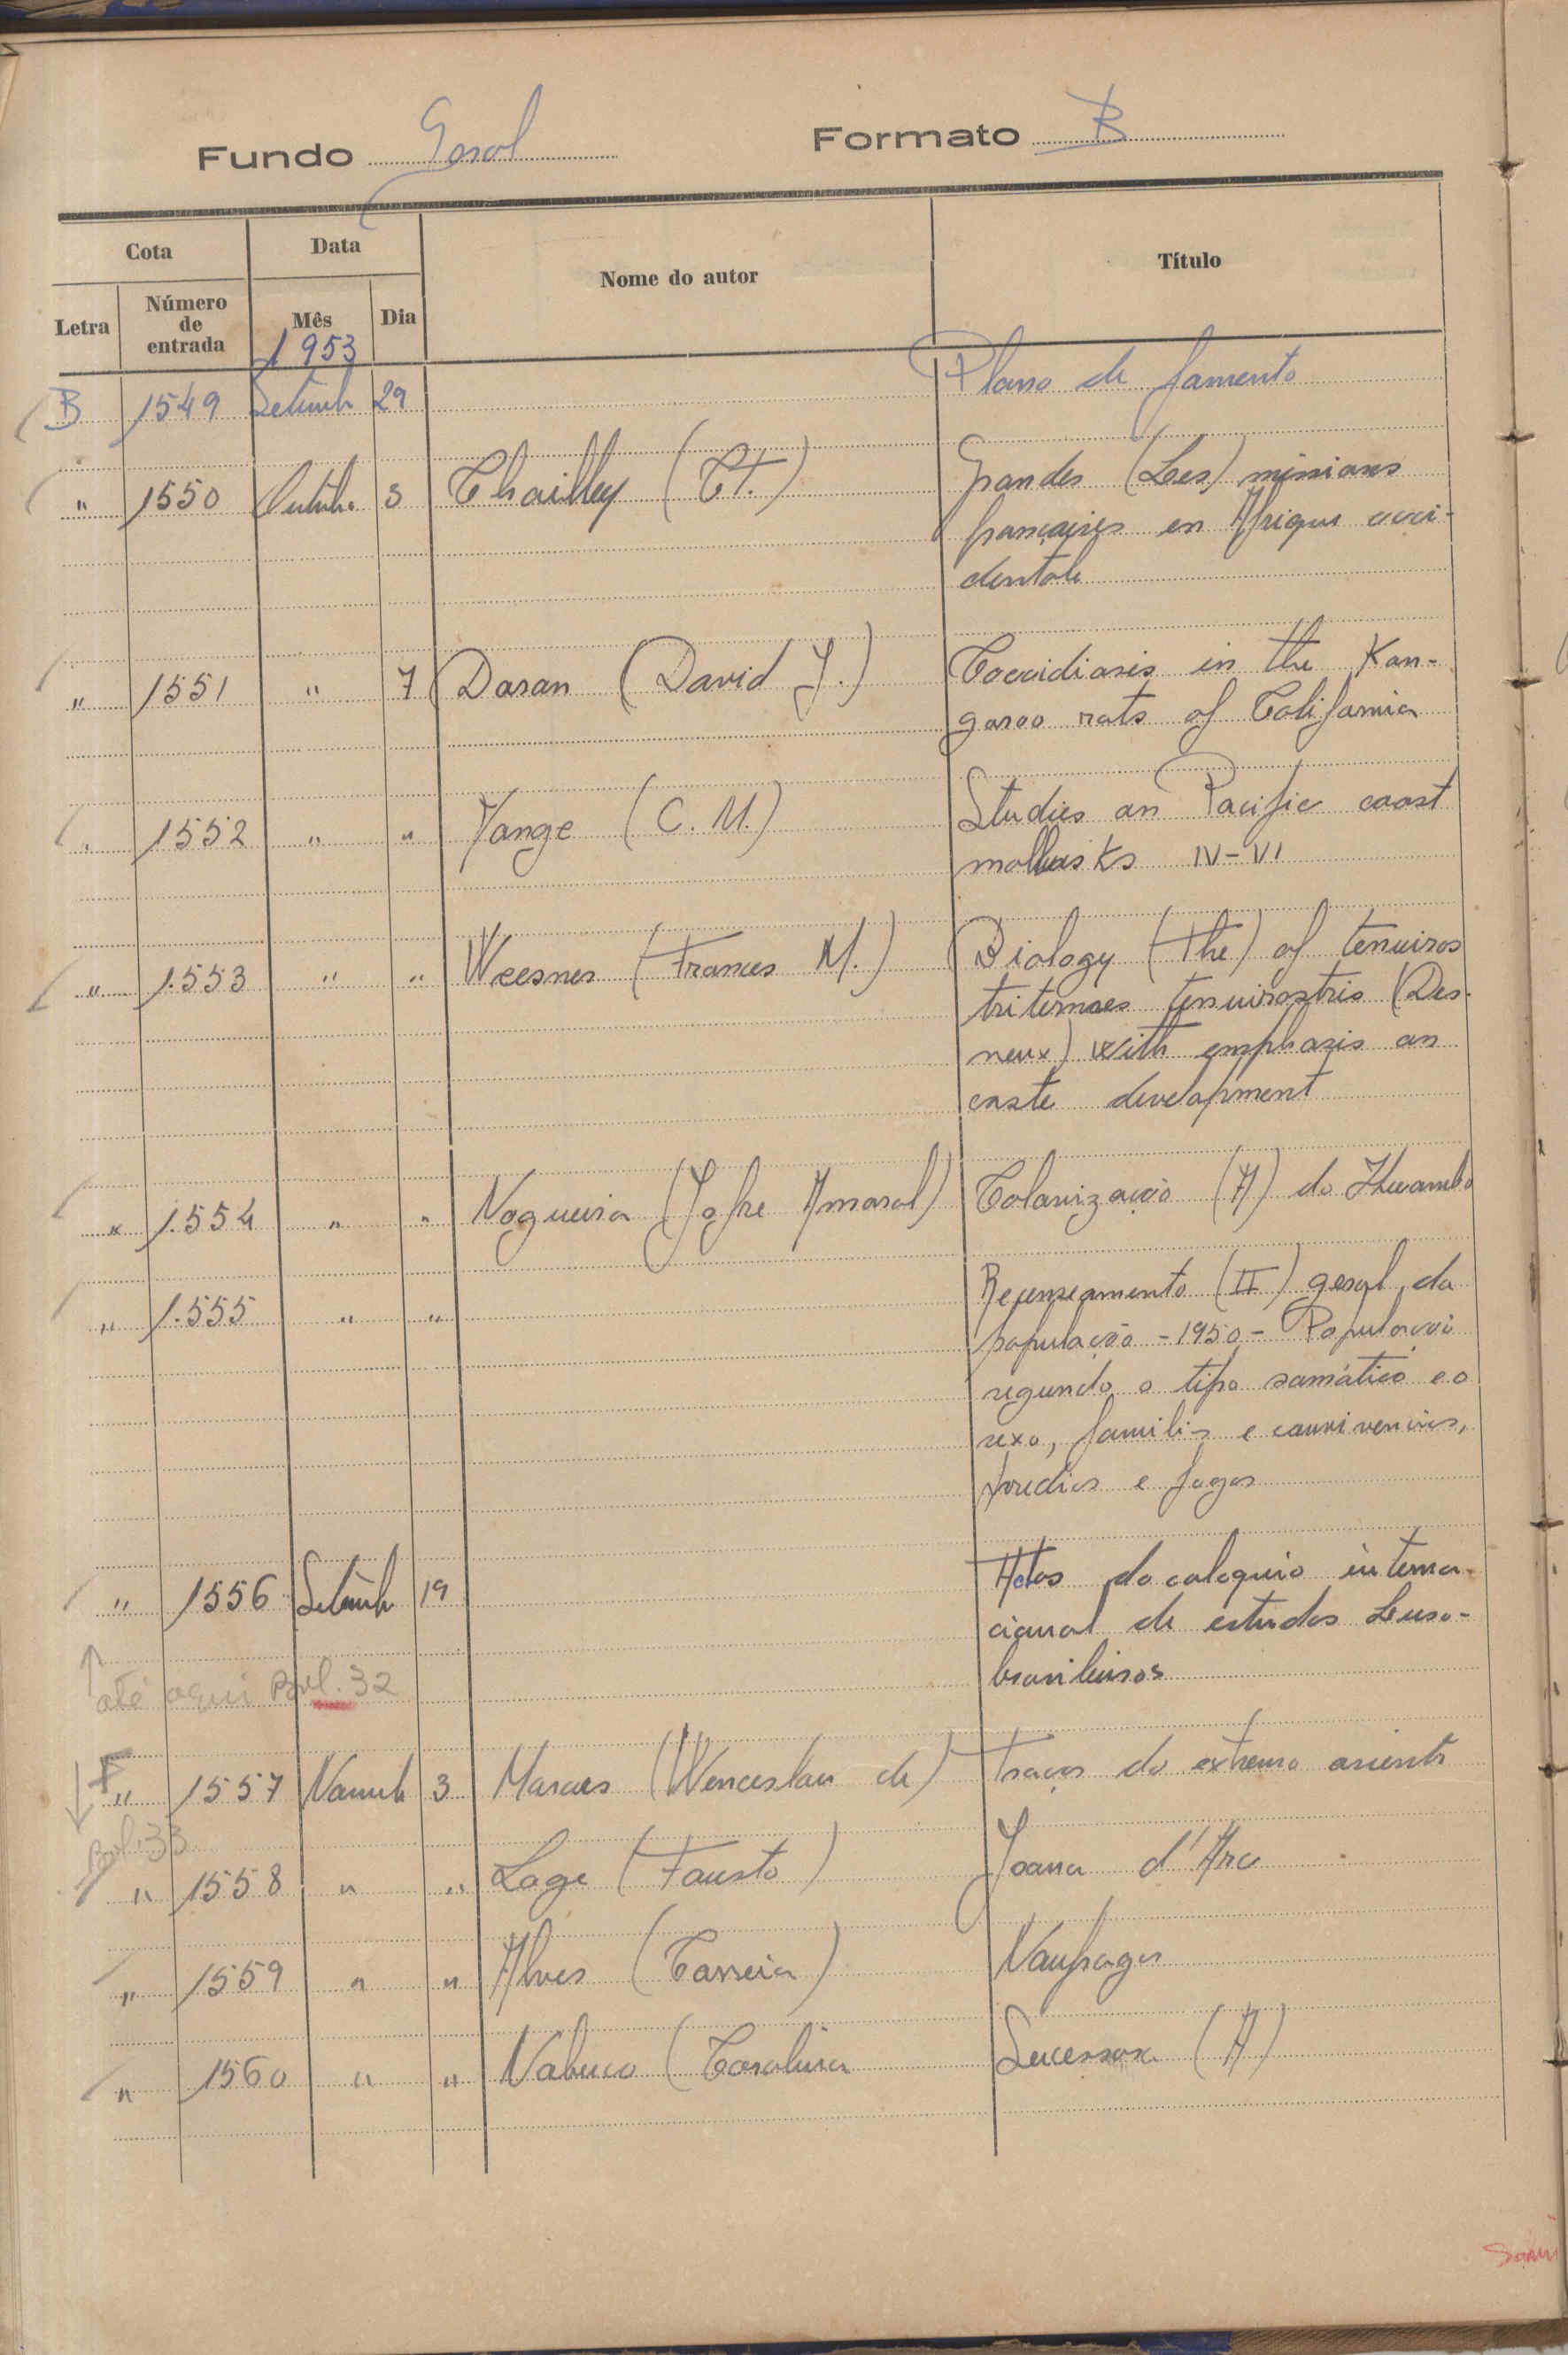 Fundo Geral Formato B
Cota Data Nome do autor Título
Letra Número de entrada Mês Dia
1953
B 1549 Setembº 29 Plano de fomento
" 1550 Outubº 5 Chailley (Ct.) Grandes (Les) missions
françaises en Afrique occi-
dentale
" 1551 " 7 Doran (David J.) Coccidiosis in the Kan-
garoo rats of California
" 1552 " " Yonge (C. M.) Studies on Pacific coast
mollusks IV-VI
" 1.553 " " Weesner (Frances M.) Biology (The) of tenuiros
tritermes tenuirostris (Des-
neux) with emphasis on
caste development
" 1.554 " " Nogueira (Jofre Amaral) Colonização (A) do Huambo
" 1.555 " " Recenseamento (II) geral da
população - 1950 - População
segundo o tipo somático e o
sexo, familias e convivencias,
predios e fogos
" 1556 Setembº 19 Actas do coloquio interna-
cional de estudos Luso-
brasileiros
até aqui Bol. 32
F
" 1557 Novemb 3 Moraes (Wenceslau de) Traços do extremo oriente
Bol. 33
" 1558 " " Lage (Fausto) Joana d'Arc
" 1559 " " Alves (Correia) Naufragos
" 1560 " " Nabuco (Carolina Sucessora (A)